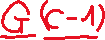 G (c-1)